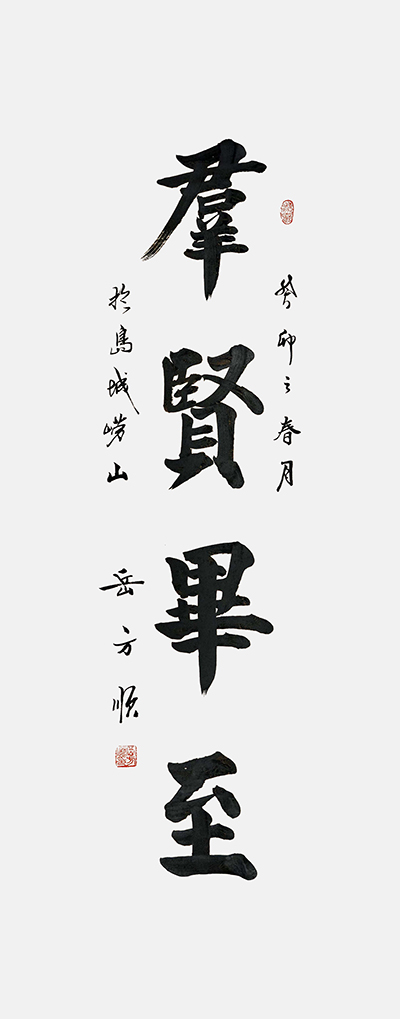 癸卯之春月
羣賢畢至
於島城嶗山
岳方順